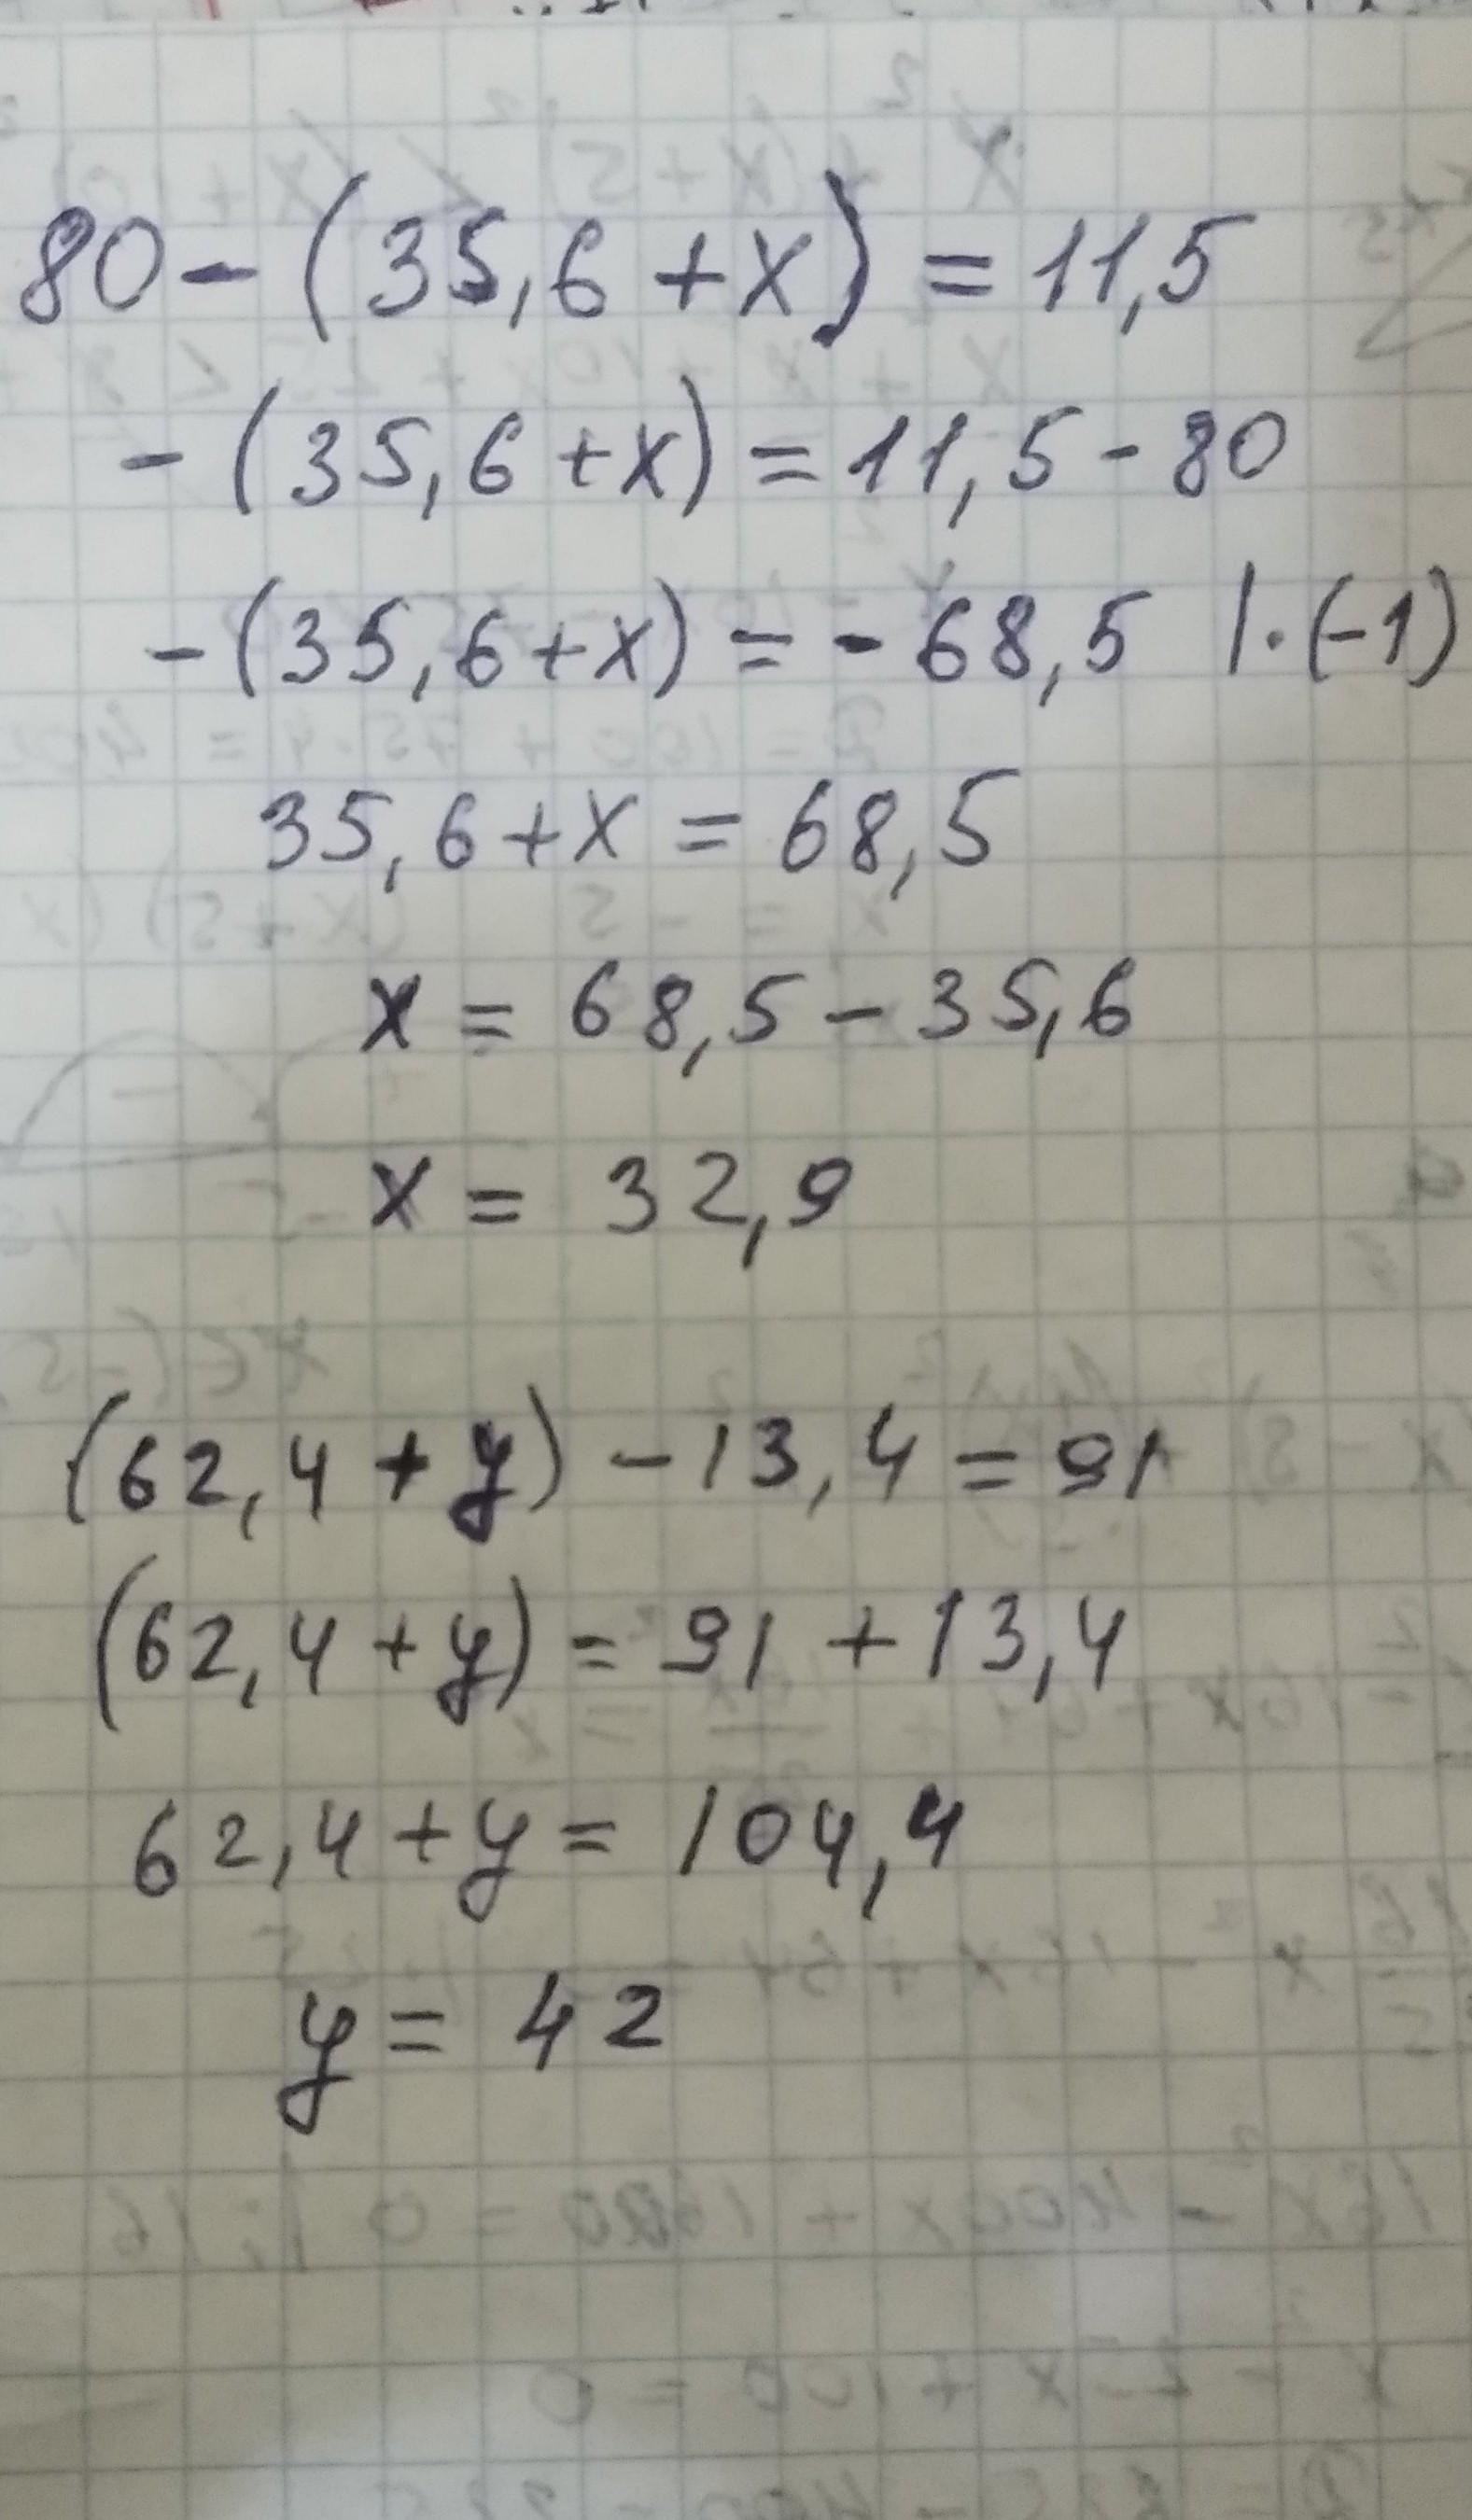 80-(35,6+x)=11,5
-(35,6+x)=11,5-80
-(35,6+x)=-68,5 |·(-1)
35,6+x=68,5
x=68,5-35,6
x=32,9
(62,4+y)-13,4=91
(62,4+y)=91+13,4
62,4+y=104,4
y=42